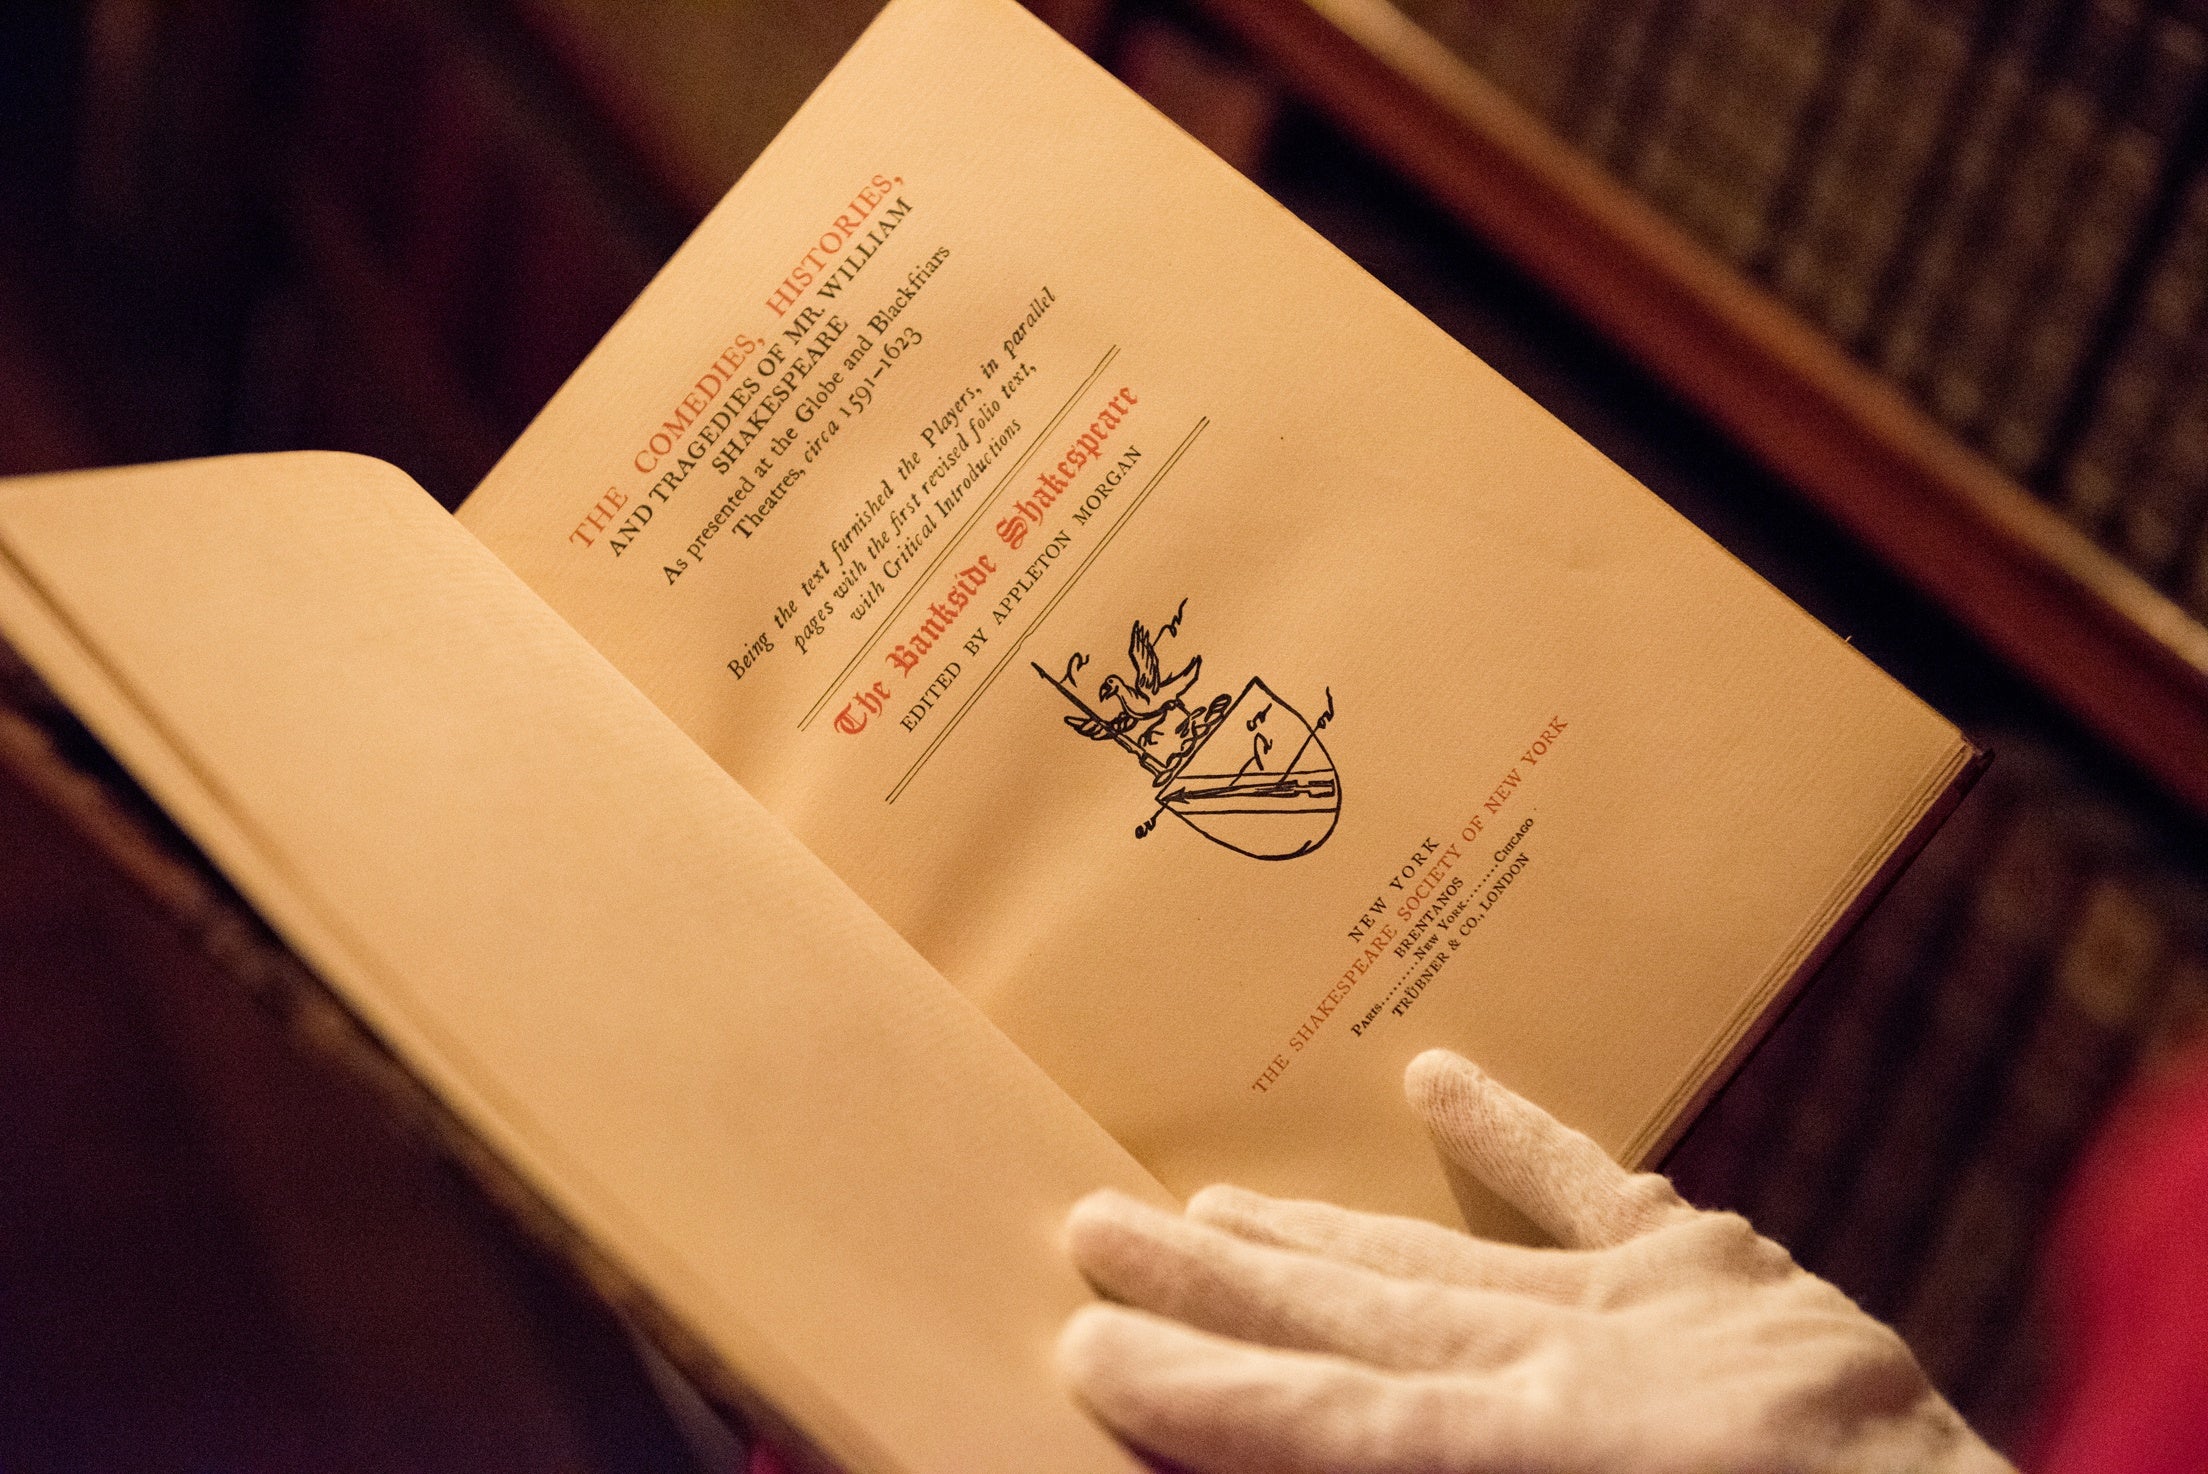 THE COMEDIES, HISTORIES,
AND TRAGEDIES OF MR. WILLIAM
SHAKESPEARE
As presented at the Globe and Blackfriars
Theatres, circa 1591–1623
Being the text furnished the Players, in parallel
pages with the first revised folio text,
with Critical Introductions
The Bankside Shakespeare
EDITED BY APPLETON MORGAN
NEW YORK
THE SHAKESPEARE SOCIETY OF NEW YORK
BRENTANOS
PARIS........NEW YORK........CHICAGO
TRÜBNER & CO., LONDON